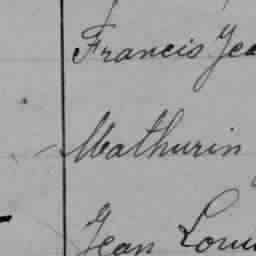 Francis Jea
Mathurin
Jean Loui